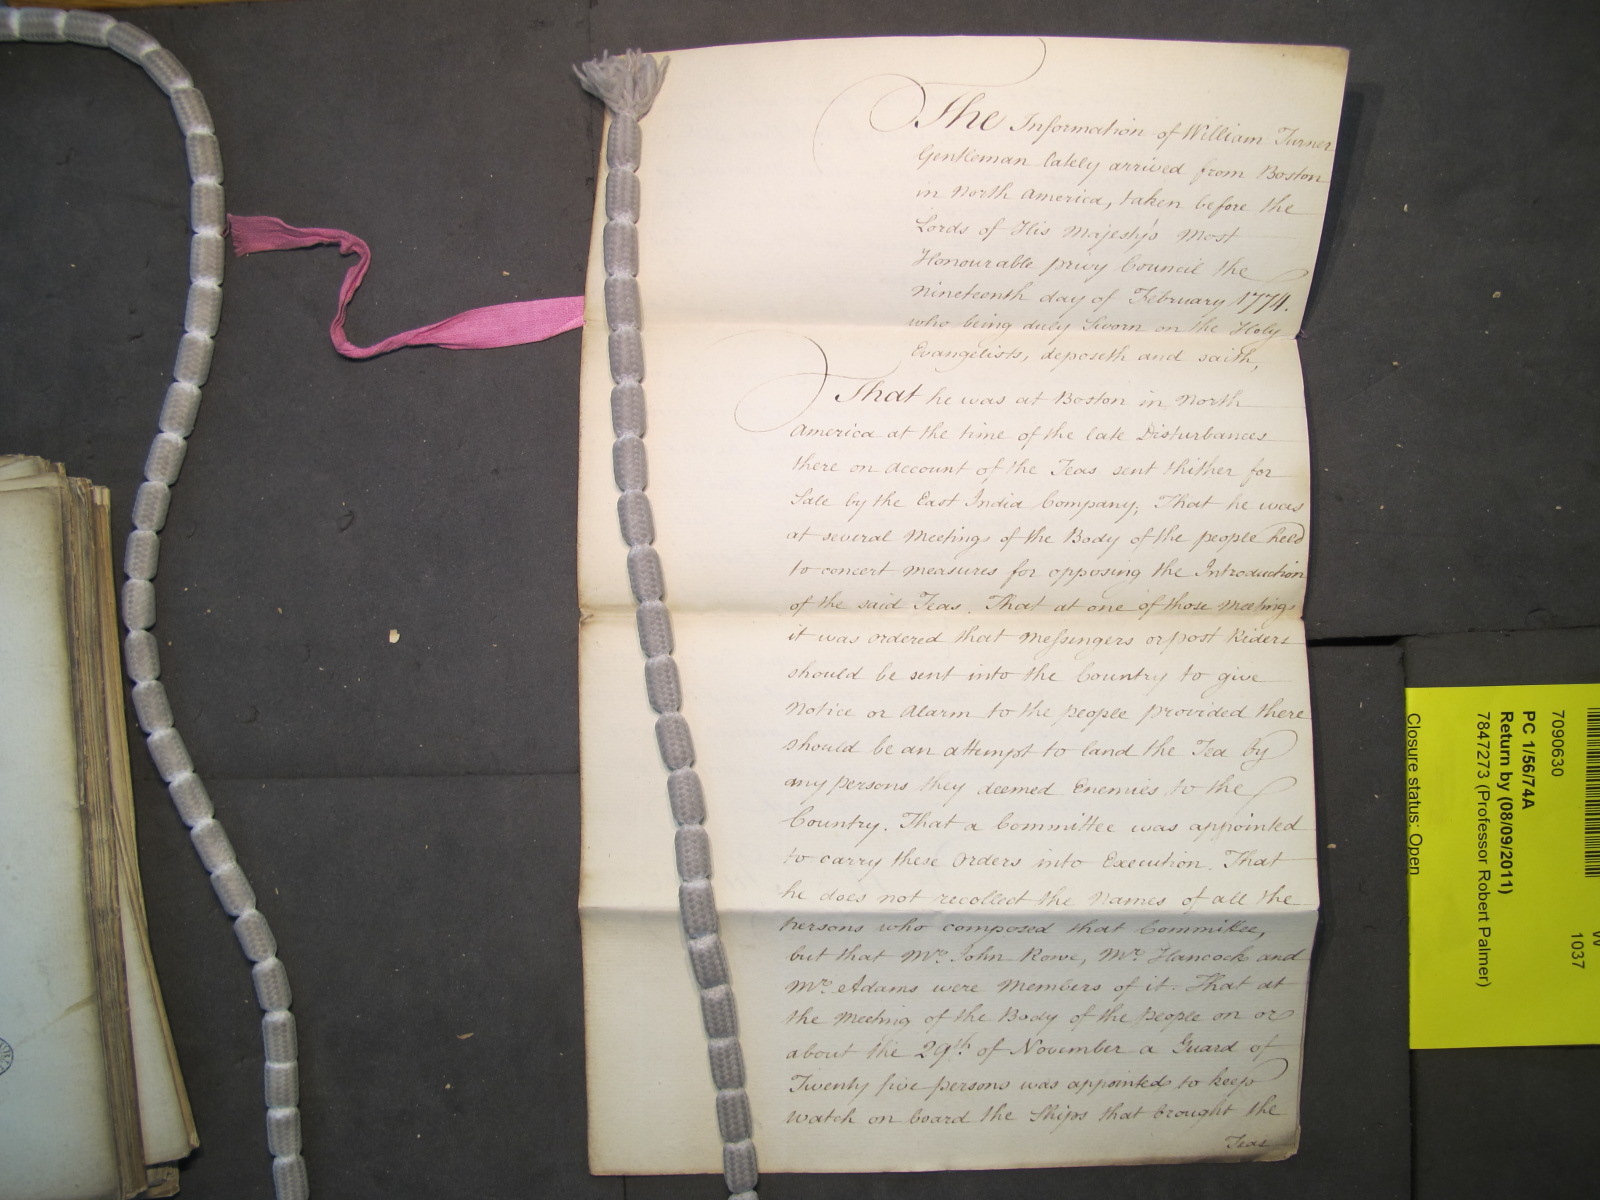 The Information of William Turner
Gentleman lately arrived from Boston
in North America, taken before the
Lords of His Majesty's Most
Honourable privy Council the
nineteenth day of February 1774.
who being duly Sworn on the Holy
Evangelists, deposeth and saith,
That he was at Boston in North
America at the time of the late Disturbances
there on account of the Teas sent thither for
Sale by the East India Company; That he was
at several Meetings of the Body of the people held
to concert measures for opposing the Introduction
of the said Teas. That at one of those Meetings
it was ordered that Messingers or post Riders
should be sent into the Country to give
Notice or Alarm to the people provided there
should be an attempt to land the Tea by
any persons they deemed Enemies to the
Country. That a Committee was appointed
to carry these Orders into Execution. That
he does not recollect the Names of all the
persons who composed that Committee,
but that Mr. John Rowe, Mr. Hancock and
Mr. Adams were Members of it. That at
the Meeting of the Body of the People on or
about the 29th of November a Guard of
Twenty five persons was appointed to keep
watch on board the Ships that brought the
Teas
7090630
PC 1/56/74A
Return by (08/09/2011)
7847273 (Professor Robert Palmer)
Closure status: Open
1037